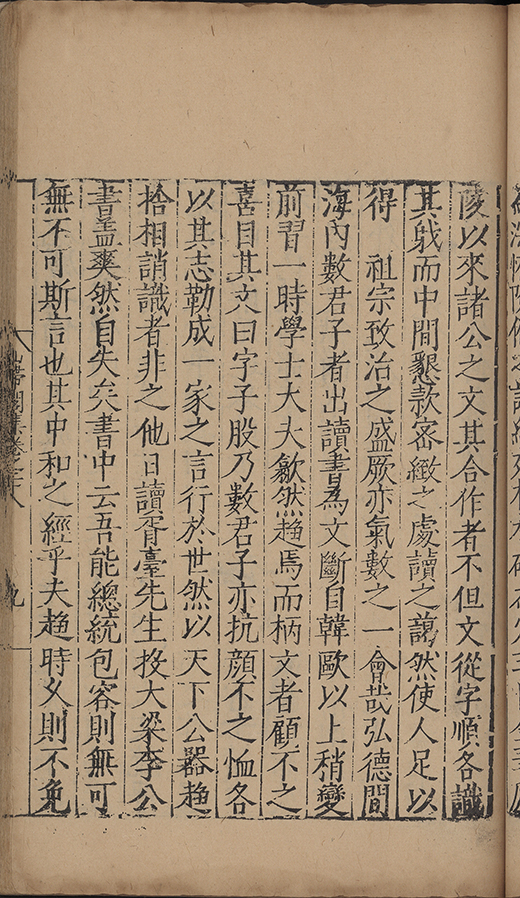 陵以來諸公之文其合作者不但文從字順各識
其職而中間懇款宻緻之處讀之藹然使人足以
得　祖宗致治之盛厥亦氣數之一會哉弘德間
海內數君子者出讀書為文斷自韓歐以上稍變
前習一時學士大夫歙然趋焉而柄文者顧不之
喜目其文曰字子股乃數君子亦抗顔不之恤各
以其志勒成一家之言行於世然以天下公器趋
捨相誚識者非之他日讀胥臺先生按大梁李公
書盖爽然自失矣書中云吾能緫統包容則無可
無不可斯言也其中和之經乎夫趋時乆則不免